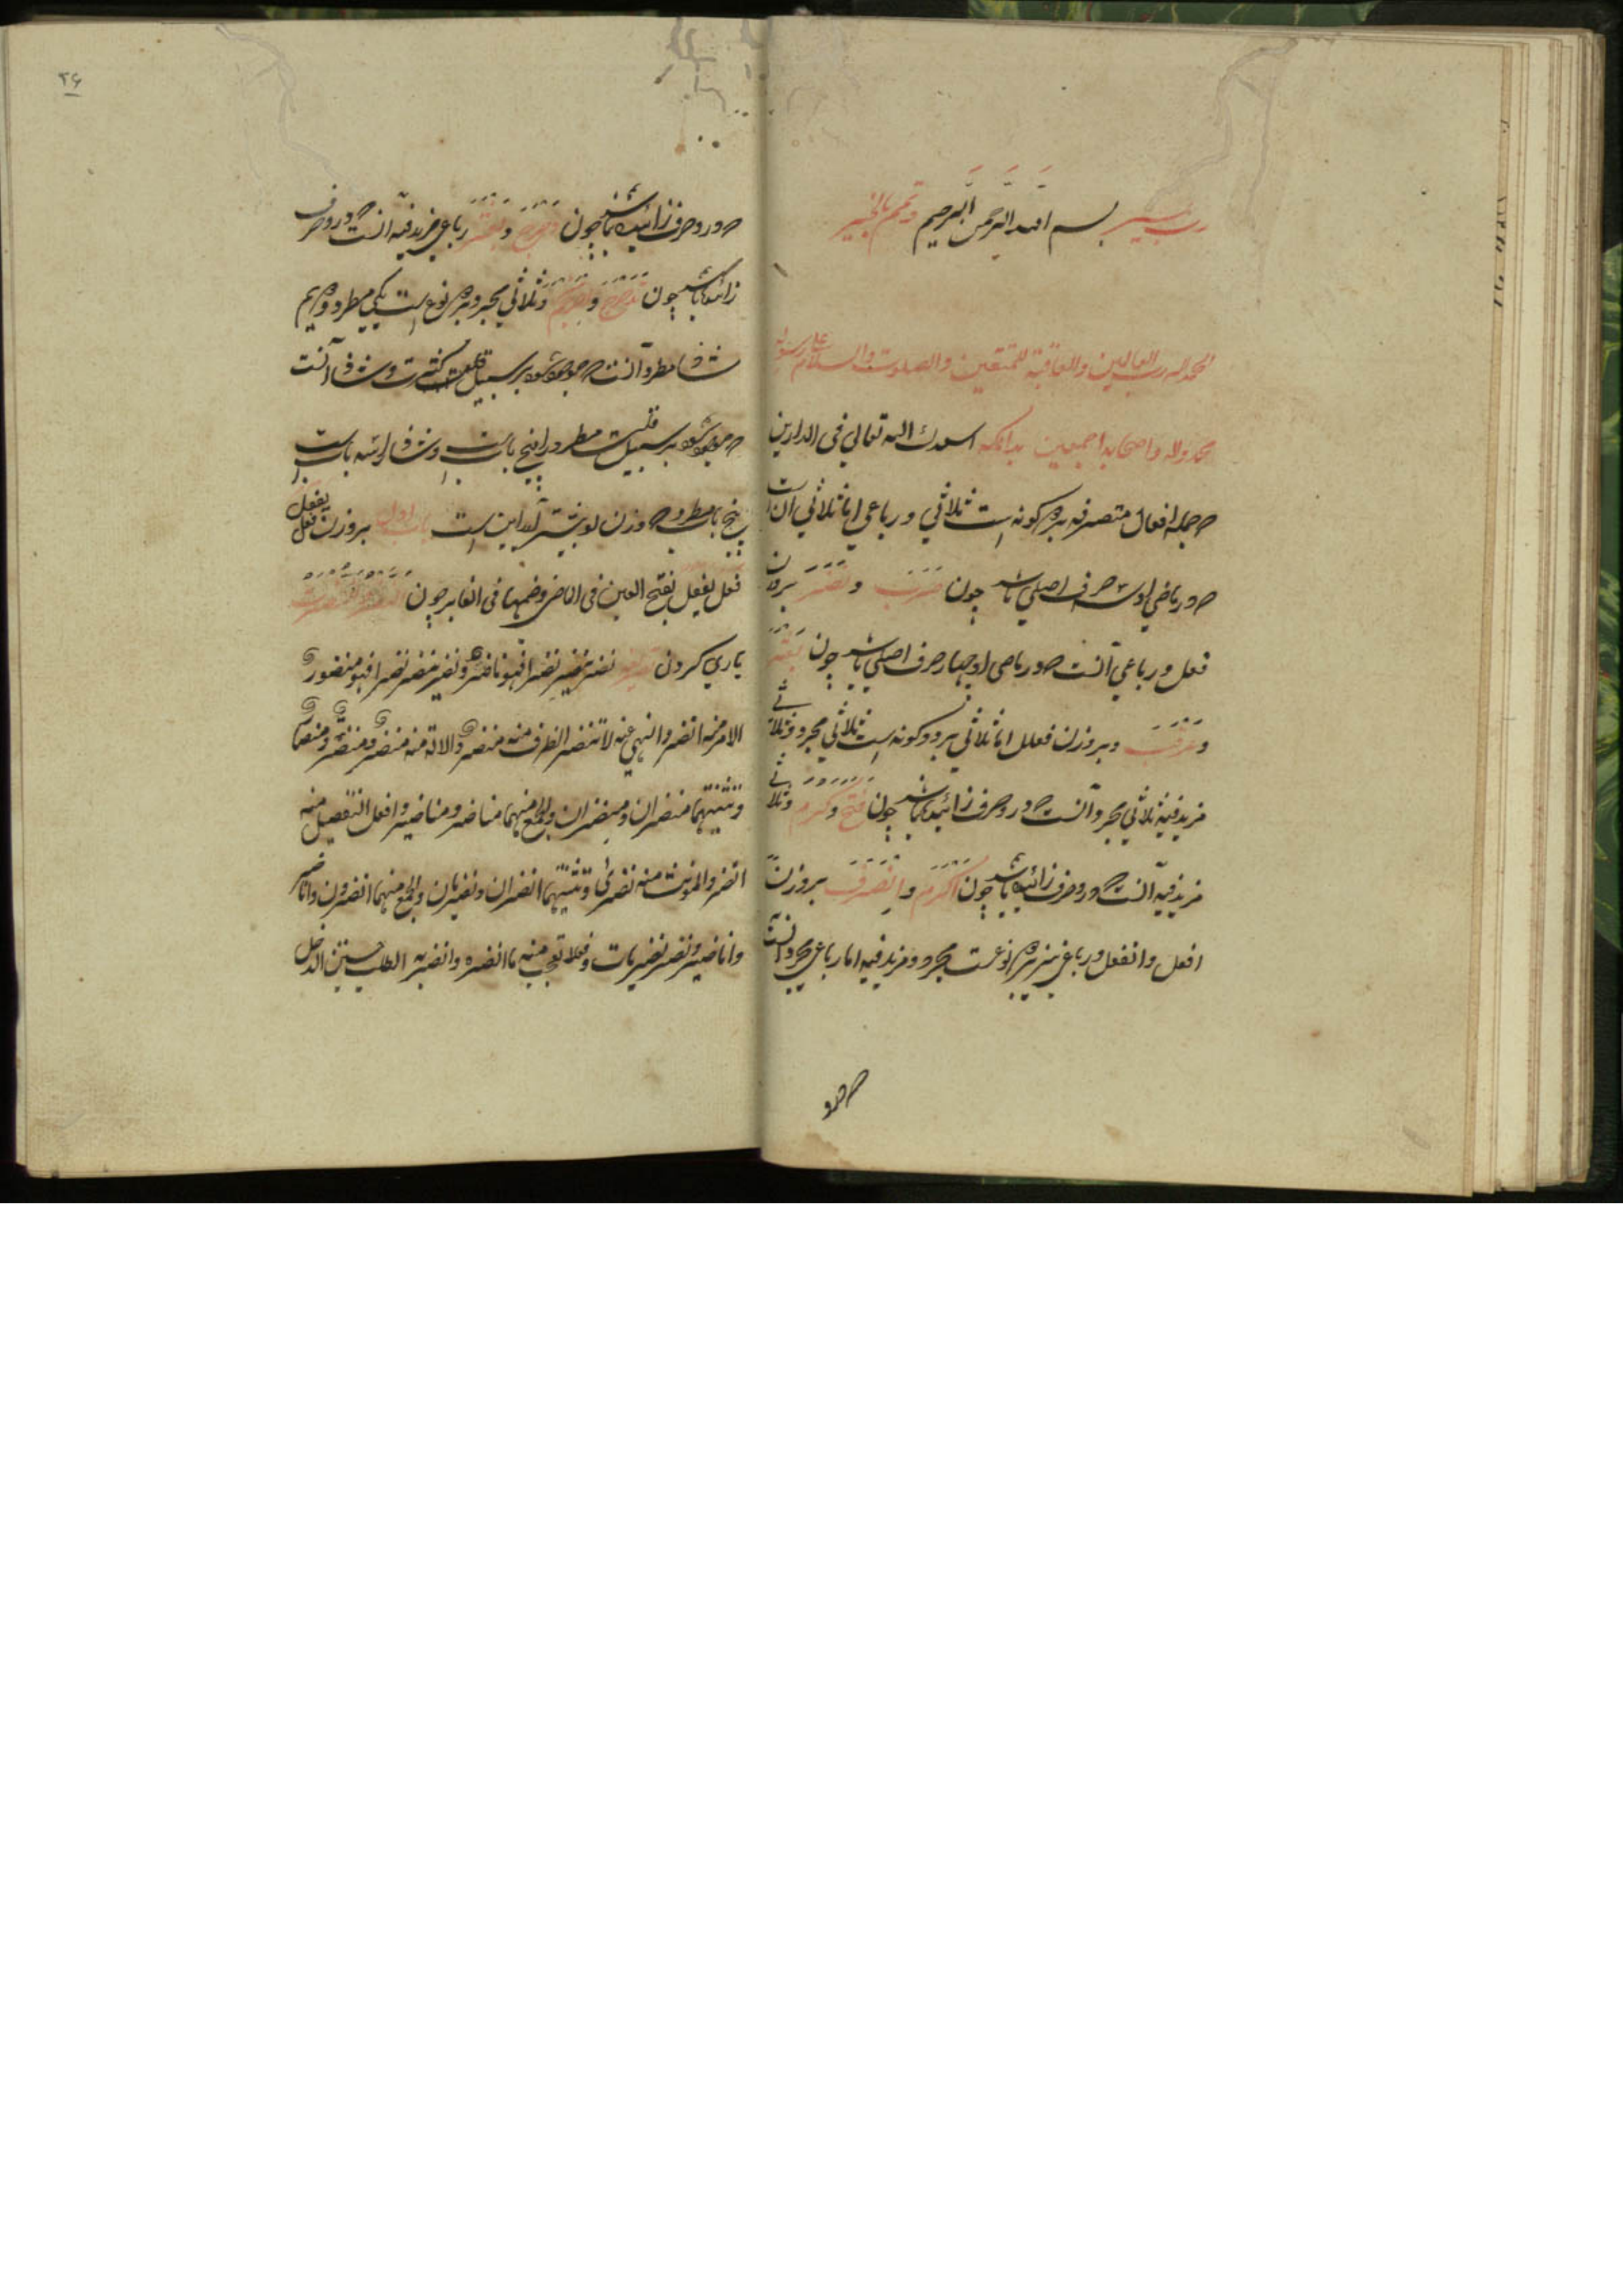 رب یسر بسم الله الرحمن الرحیم وتمم بالخیر
الحمد لله رب العالمین والعاقبة للمتقین والصلوت والسلام علی رسوله
محمد واله واصحابه اجمعین بدانکه اسعدک الله تعالی فی الدارین
که جمله افعال متصرفه بر دو کونه است ثلاثی ورباعی اما ثلاثی آن است
که در ماضی او سه حرف اصلی باشد چون ضرب و نصر بر وزن
فعل ورباعی آنست که در ماضی او چهار حرف اصلی باشد چون بعثر
وعرقب وبر وزن فعلل اما ثلاثی بر دو کونه است ثلاثی مجرد وثلاثی
مزید فیه ثلاثی مجرد آنست که در و حرف زائید نباشد چون فتح وکرم وثلاثی
مزید فیه آنست که در و حرف زائید باشد چون اکرم وانصرف بر وزن
افعل وانفعل ورباعی نیز بر دو نوعست مجرد ومزید فیه اما رباعی مجرد آنست
که در و
که در و حرف زائید نباشد چون دحرج وبعثر رباعی مزید فیه آنست که در و حرف
زائید باشد چون تدحرج و وثلاثی مجرد بر دو نوع است یکی مطرد ودویم
شاذ اما مطرد آنست که موجود شود بر سبیل کثرت وشاذ آنست
که موجود شود بر سبیل قلت مطرد را پنج باب است وشاذ را سه باب است
پنج باب مطرد که وزن او بیشتر آید این است باب اول بر وزن فعل یفعل
فعل یفعل بفتح العین فی الماضی وضمها فی الغابر چون النصر والنصرت
یاری کردن تصریفه نصر ینصر نصرا فهو ناصر ونصر ینصر نصرا فهو منصور
الامر منه انصر والنهی عنه لا تنصر الظرف منه منصر والالة منه منصر ومنصرة ومنصار
وتثنیتهما منصران ومنصران والجمع منهما مناصر ومناصیر وافعل التفضیل منه
انصر والمونث منه نصری وتثنیتهما انصران ونصریان والجمع منهما انصرون واناصر
واناصیر ونصر ونصریات وفعلا تعجب منه ما انصره وانصر به الطلب جستن الدخل
۲۶